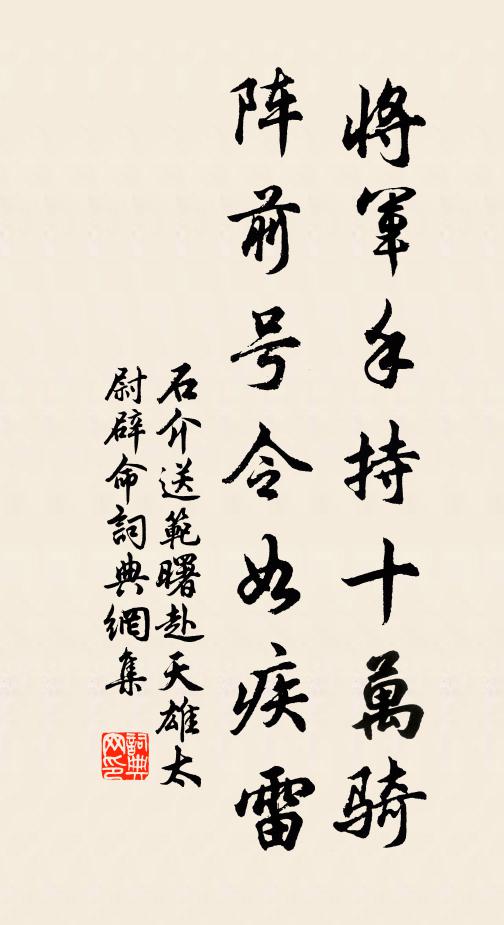 將軍手持十萬騎
阵前号令如疾雷
石介送範曙赴天雄太
尉辟命詞典網集
詞典网印